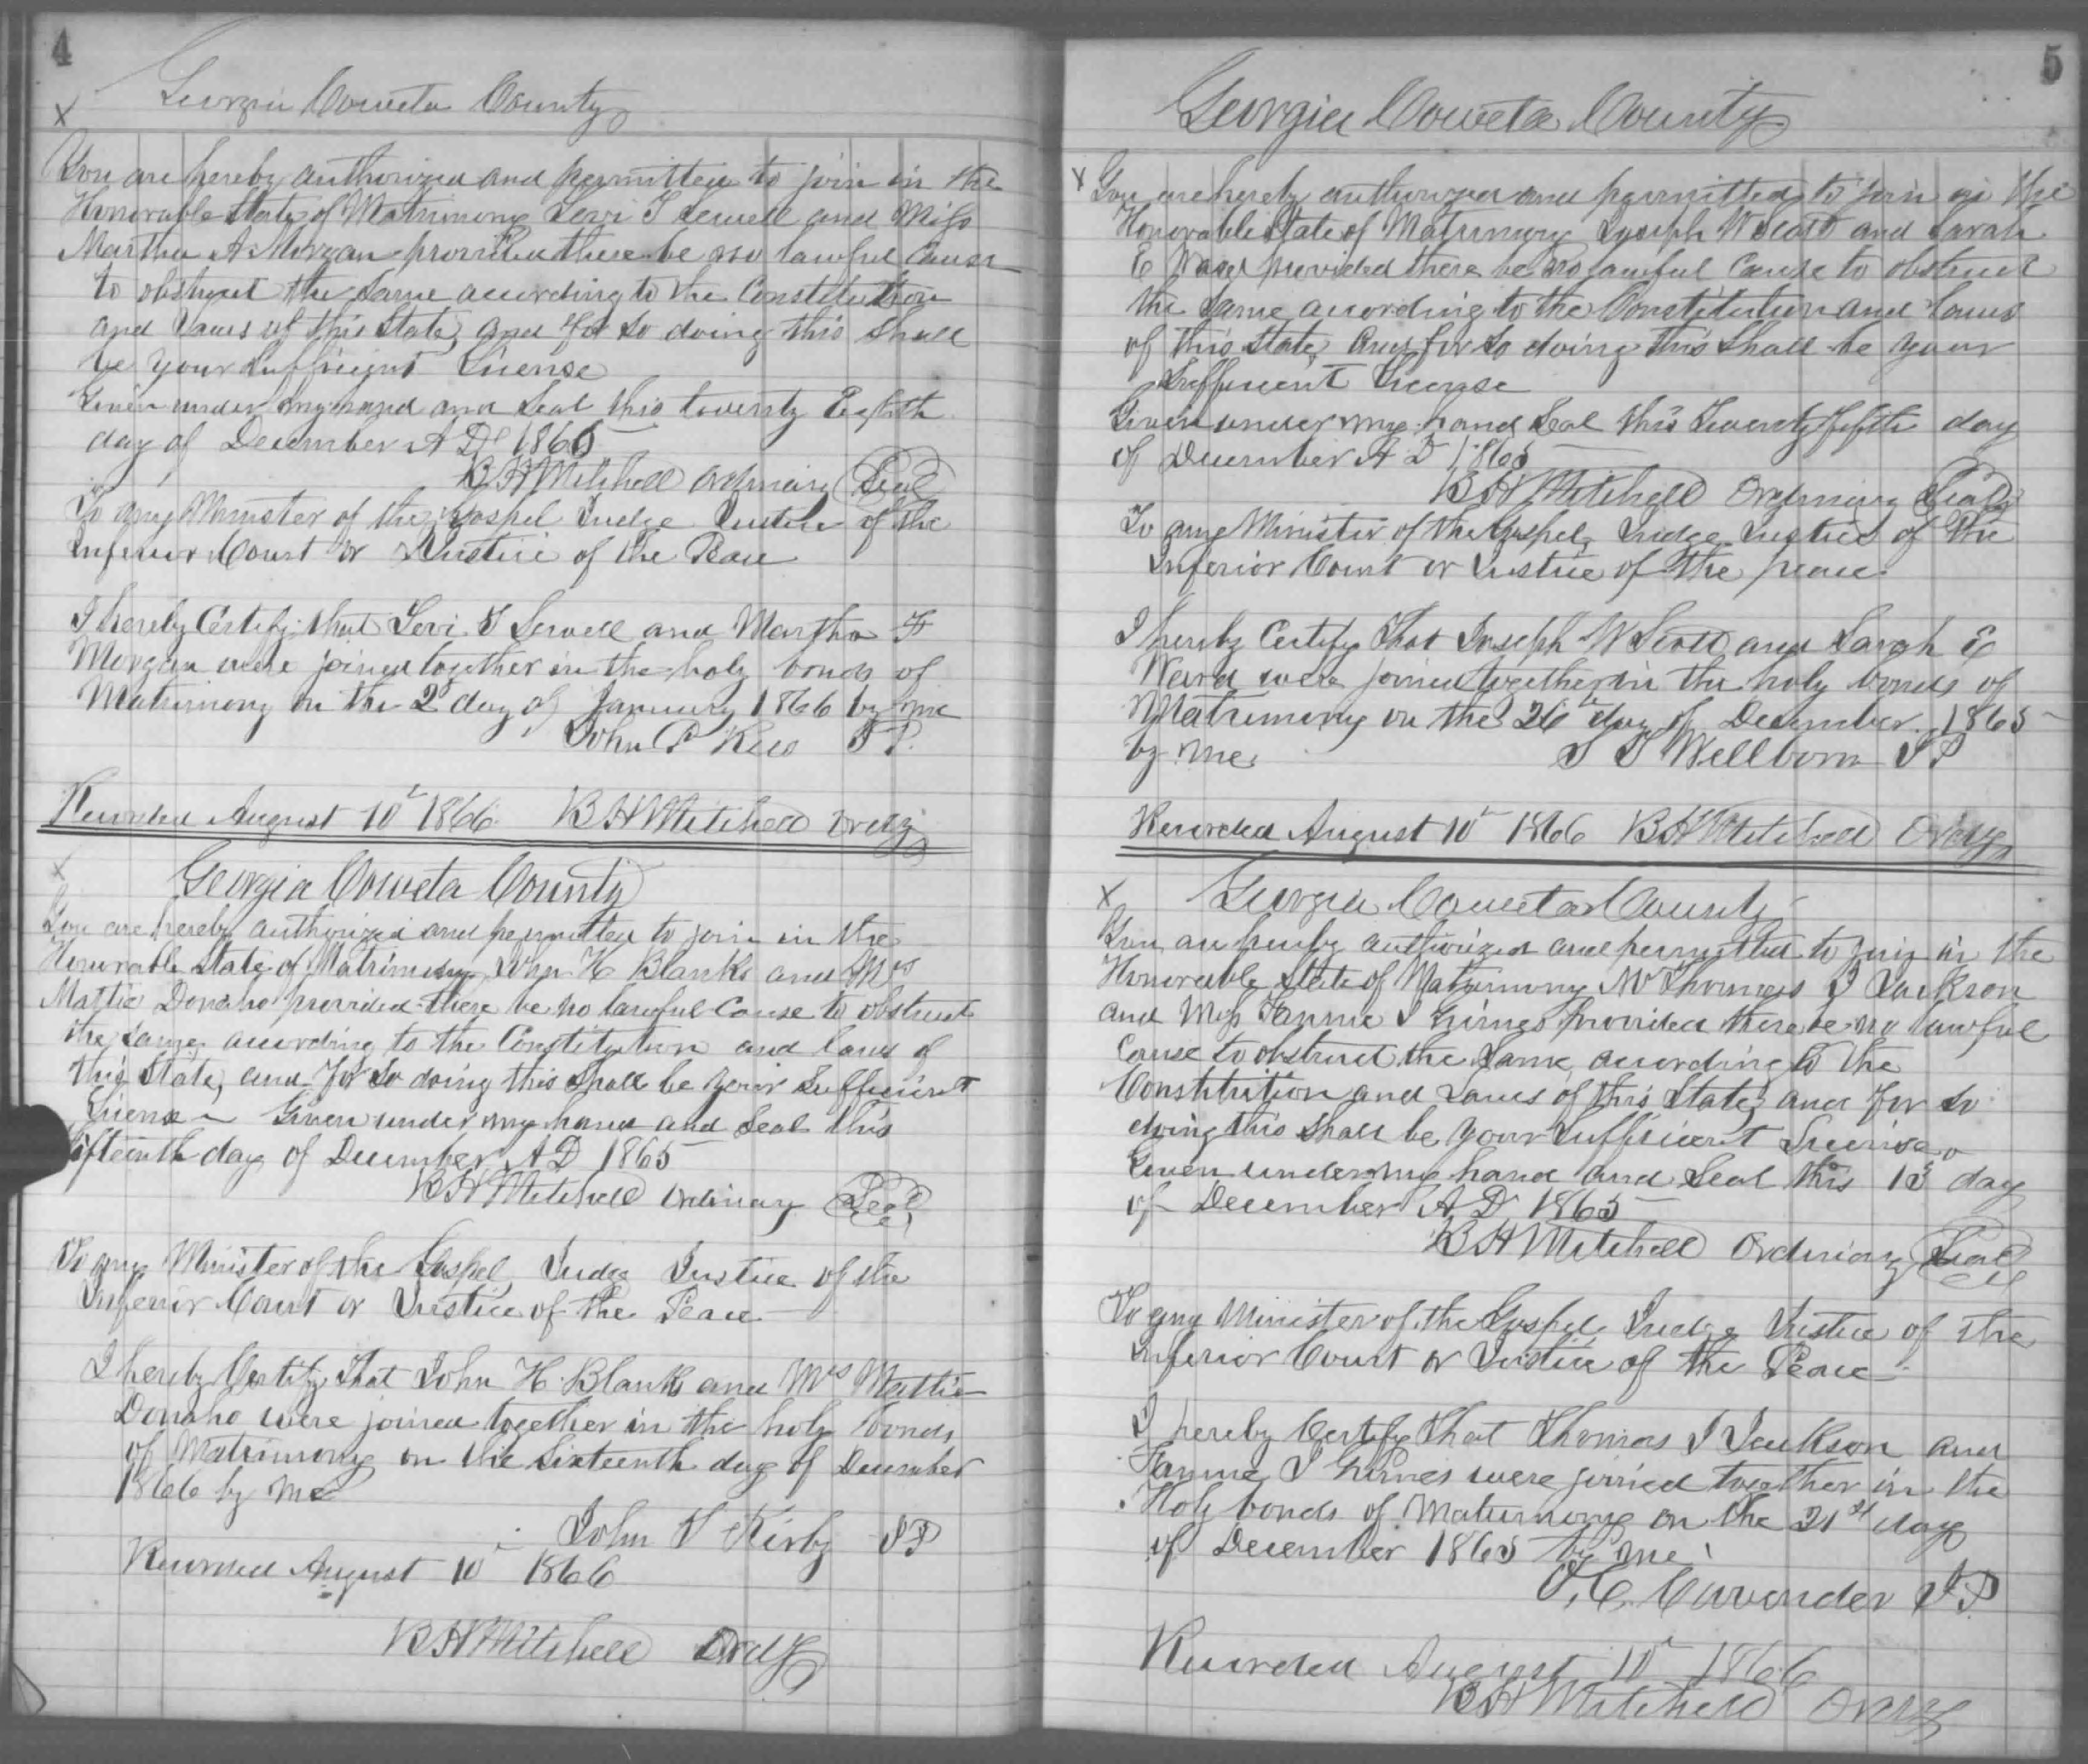 4
Georgia Coweta County
X
You are hereby authorized and permitted to join in the
Honorable State of Matrimony Levi T Sewell and Miss
Martha A Morgan provided there be no lawful Cause
to obstruct the Same according to the Constitution
and Laws of this State, and for so doing this Shall
be your Sufficient License
Given under my hand and Seal this twenty Eighth
day of December A D 1865
B H Mitchell Ordinary Seal
To any Minister of the Gospel Judge Justice of the
Inferior Court or Justice of the Peace
I hereby Certify that Levi T Sewell and Martha
Morgan were joined together in the holy bonds of
Matrimony on the 2d day of January 1866 by me
John P JP.
Recorded August 10th 1866. B H Mitchell Ordy
X
Georgia Coweta County
You are hereby authorized and permitted to join in the
Honorable State of Matrimony John H Blanks and Mrs
Mattie Donaho provided there be no lawful Cause to obstruct
the Same according to the Constitution and laws of
this State, and for so doing this Shall be your Sufficient
License Given under my hand and Seal this
fifteenth day of December A D 1865
B H Mitchell Ordinary Seal
To any Minister of the Gospel Judge Justice of the
Inferior Court or Justice of the Peace
I hereby Certify that John H Blanks and Mrs Mattie
Donaho were joined together in the holy bonds
of Matrimony on the Sixteenth day of December
1866 by me
John T Kirby JP
Recorded August 10th 1866
B H Mitchell Ordy
5
Georgia Coweta County
X
You are hereby authorized and permitted to join in the
Honorable State of Matrimony Joseph W Scott and Sarah
E Ward provided there be no lawful Cause to obstruct
the Same according to the Constitution and Laws
of this State, and for so doing this Shall be your
Sufficient License
Given under my hand Seal this Twenty fifth day
of December A D 1865
B H Mitchell Ordinary Seal
To any Minister of the Gospel, Judge Justice of the
Inferior Court or Justice of the peace
I hereby Certify that Joseph W Scott and Sarah E
Ward were joined together in the holy bonds of
Matrimony on the 26th day of December 1865
by me. Wellborn JP
Recorded August 10th 1866 B H Mitchell Ordy
X
Georgia Coweta County
You are hereby authorized and permitted to join in the
Honorable State of Matrimony Mr Thomas J Jackson
and Miss Fannie J Grimes provided there be no lawful
Cause to obstruct the Same according to the
Constitution and Laws of this State, and for so
doing this Shall be your Sufficient License
Given under my hand and Seal this day
of December A D 1865
B H Mitchell Ordinary Seal
To any Minister of the Gospel, Judge Justice of the
Inferior Court or Justice of the Peace
I hereby Certify that Thomas J Jackson and
Fannie J Grimes were joined together in the
Holy bonds of Matrimony on the 21st day
of December 1865 by me
C. Cavender JP
Recorded August 10th 1866
B H Mitchell Ordy